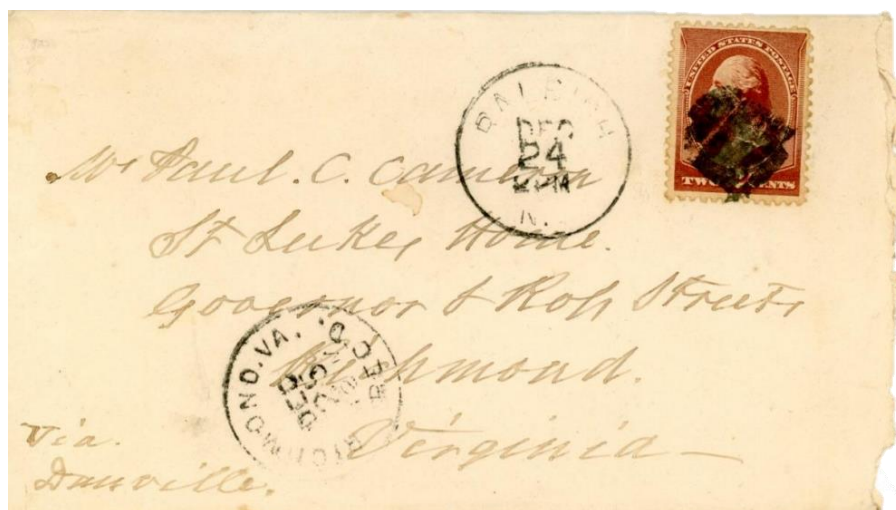 UNITED STATES POSTAGE
TWO CENTS
RALEIGH
DEC
24
2 PM
N.
Mr Paul. C. Cameron
St Lukes Home.
Governor & Ross Streets
Richmond.
Virginia
Via.
Danville.
RICHMOND. VA.
REC'D.
DEC